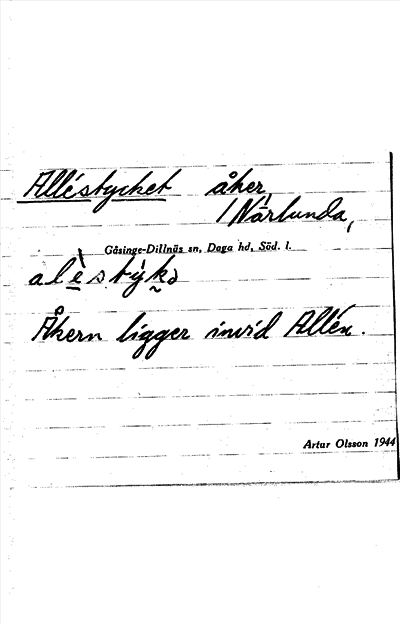 Alléstycket åker,
/ Närlunda,
Gåsinge-Dillnäs sn, Daga hd, Söd. l.
Åkern ligger invid Allén.
Artur Olsson 1944